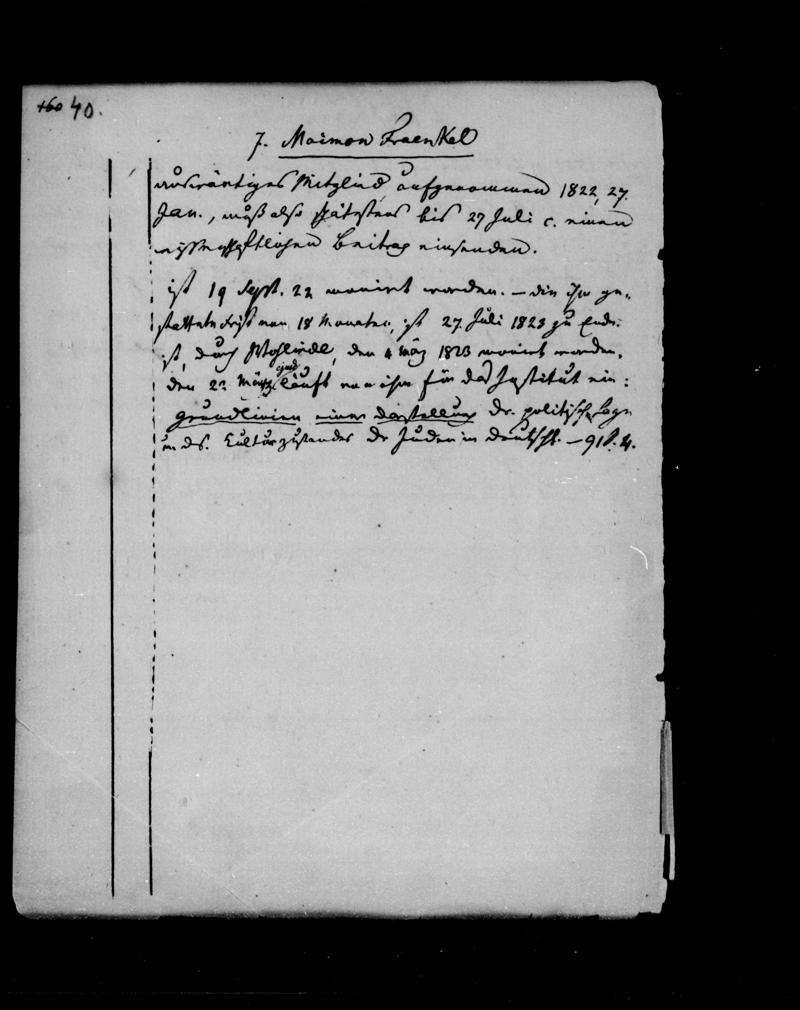 40.
7. Maimon Fraenkel
auswärtiges Mitglied aufgenommen 1822, 27.
Jan., muß also spätestens bis 27 Juli c. einen
wissenschaftlichen Beitrag einsenden.
ist 19 Sept. 22 monirt worden. — die ihm ge-
stattete Frist von 18 Monaten, ist 27. Juli 1823 zu Ende.
ist, durch Wohlwill, den 4 März 1823 monirt worden.
den 22 März ejusd läuft von ihm für das Institut ein:
Grundlinien einer Darstellung der politisch. Lage
u. des Culturzustandes der Juden in Deutschl. — 91 S. 4.